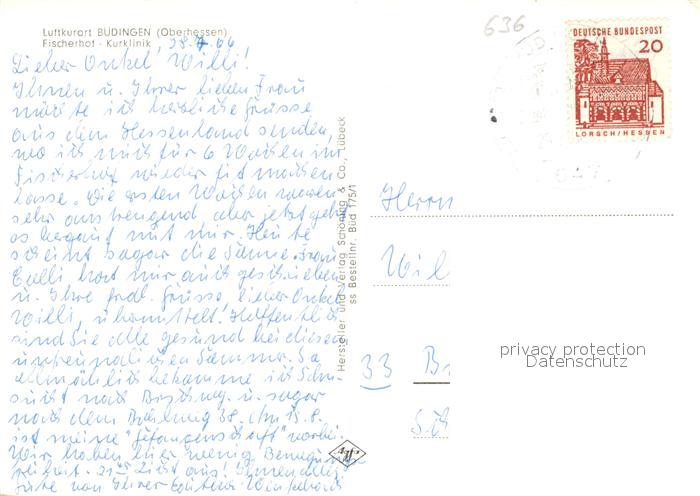 Luftkurort BÜDINGEN (Oberhessen)
Fischerhof - Kurklinik 28.7.66
Lieber Onkel Willi!
Ihnen u. Ihrer lieben Frau
möchte ich herzliche Grüsse
aus dem Hessenland senden,
wo ich mich für 6 Wochen im
Fischerhof wieder fit machen
lasse. Die ersten Wochen waren
sehr anstrengend aber jetzt geht
es bergauf mit mir. Heute
scheint sogar die Sonne. Frau
hat mir auch geschrieben
u. Ihre frdl. Grüsse, lieber Onkel
Willi, übermittelt. Hoffentlich
sind Sie alle gesund bei diesem
unfreundlichen Sommer. So
allmählich bekomme ich Sehn-
sucht nach u. sogar
nach dem 38. Am 13.8.
ist meine "Gefangenschaft" vorbei.
Wir haben hier wenig Bewegungs-
freiheit. 21 Licht aus! Ihnen alles
Gute von Ihrer
Hersteller und Verlag Schöning & Co., Lübeck
ss Bestellnr. Büd 175/1
Agfa
636
DEUTSCHE BUNDESPOST
20
LORSCH/HESSEN
647
Herrn
Wil
33 B
privacy protection
Datenschutz